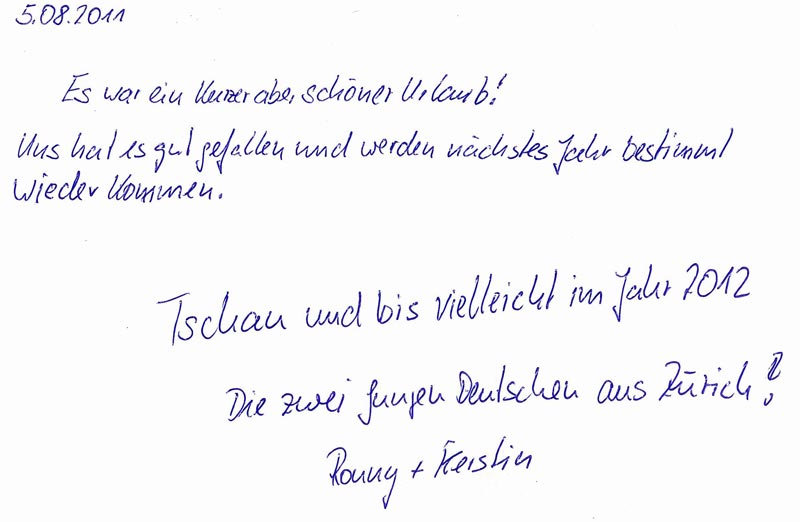 5.08.2011
Es war ein Kurzer aber schöner Urlaub!
Uns hat es gut gefallen und werden nächstes Jahr bestimmt
wieder kommen.
Tschau und bis vielleicht im Jahr 2012
Die zwei Jungen Deutschen aus Zürich!
Ronny + Kerstin